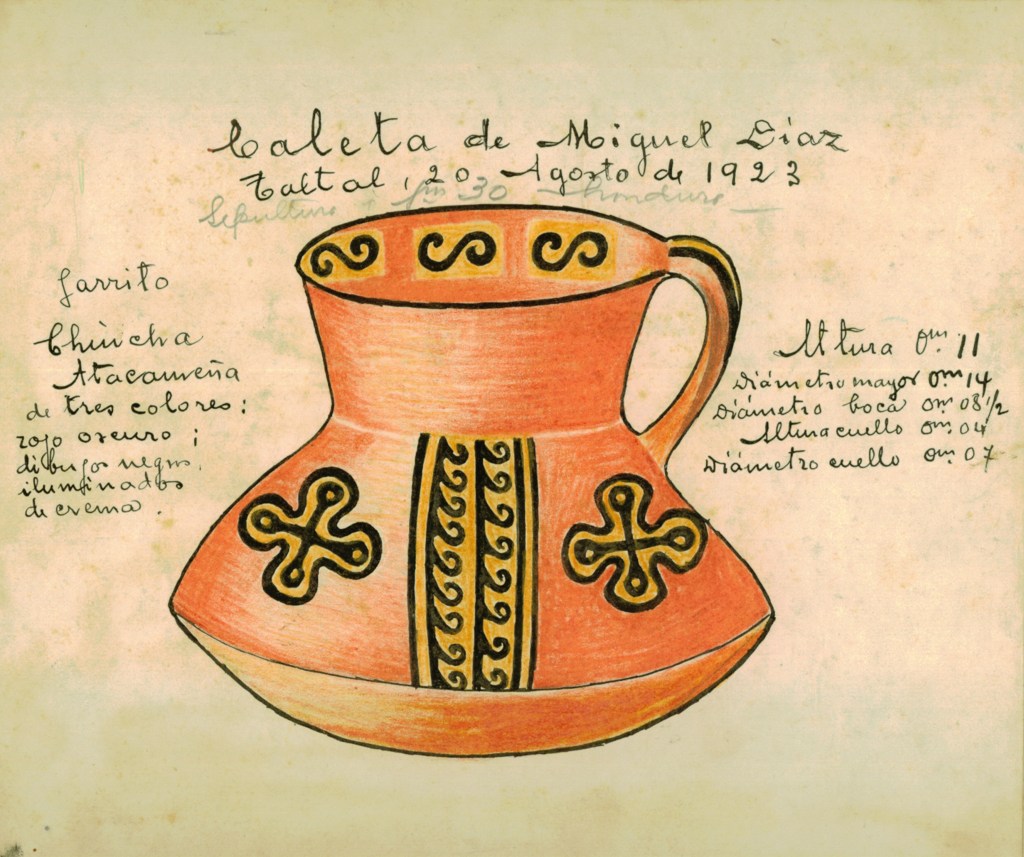 Caleta de Miguel Diaz
Taltal, 20 Agosto de 1923
Sepultura 1m 30 hondura
Jarrito
Chincha
Atacameña
de tres colores:
rojo oscuro;
dibujos negros,
iluminados
de crema.
Altura 0m 11
Diámetro mayor 0m 14
Diámetro boca 0m 08 1/2
Altura cuello 0m 04
Diámetro cuello 0m 07